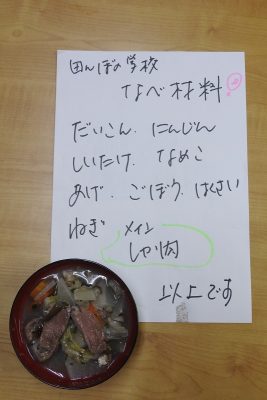 田んぼの学校
なべ材料
だいこん、にんじん
しいたけ、なめこ
あげ、ごぼう、はくさい
ねぎ メイン
しか肉
以上です